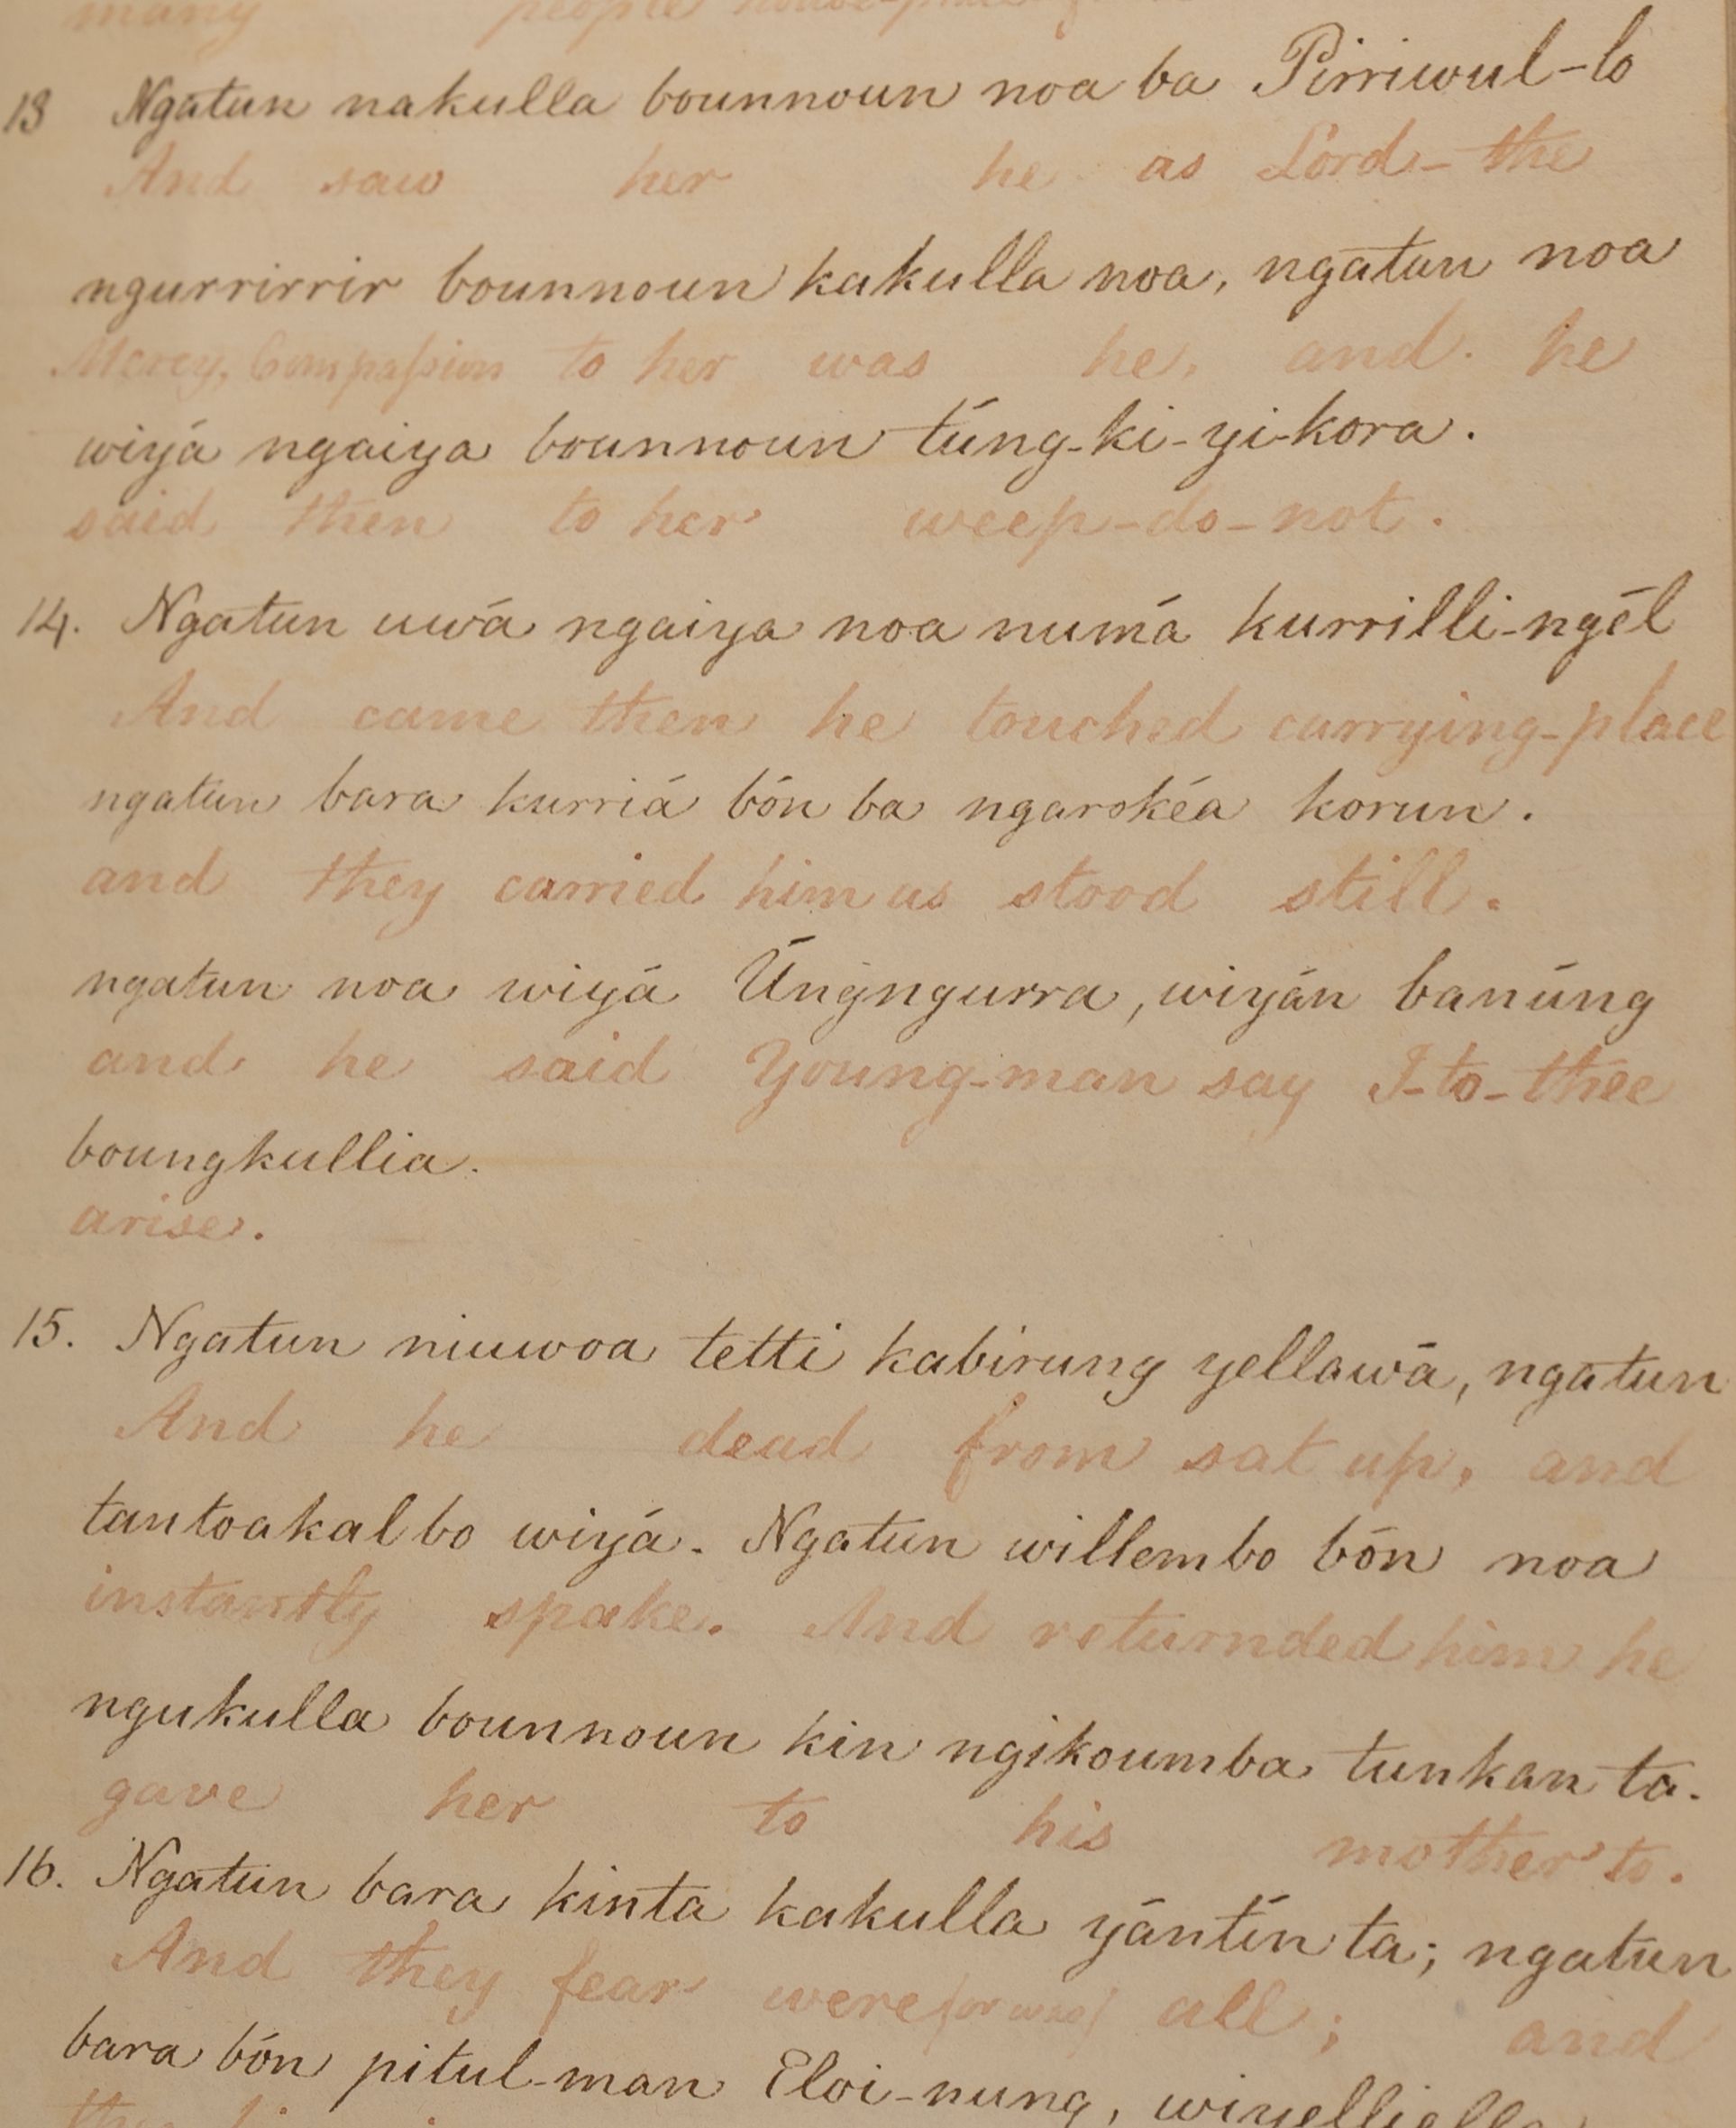 many people
13 Ngatun nakulla bounnoun noa ba Pirriwul-lo
And saw her he as Lord-the
ngurrirrir bounnoun kakulla noa, ngatun noa
Mercy, Compaſsion to her was he, and he
wiyá ngaiya bounnoun túng-ki-yi-kora.
said then to her weep-do-not.
14. Ngatun uwá ngaiya noa numá kurrilli-ngél
And came then he touched carrying-place
ngatun bara kurriá bón ba ngarokéa korun.
and they carried him as stood still.
ngatun noa wiyá Úngngurra, wiyán banúng
and he said Young-man say I-to-thee
boungkullia.
arise.
15. Ngatun niuwoa tetti kabirung yellawá, ngatun
And he dead from sat up, and
tantoakal bo wiyá. Ngatun willembo bón noa
instantly spake. And returnded him he
ngukulla bounnoun kin ngikoumba tunkan ta.
gave her to his mother to.
16. Ngatun bara kinta kakulla yántín ta; ngatun
And they fear were (or was) all; and
bara bón pitul-man Eloi-nung,